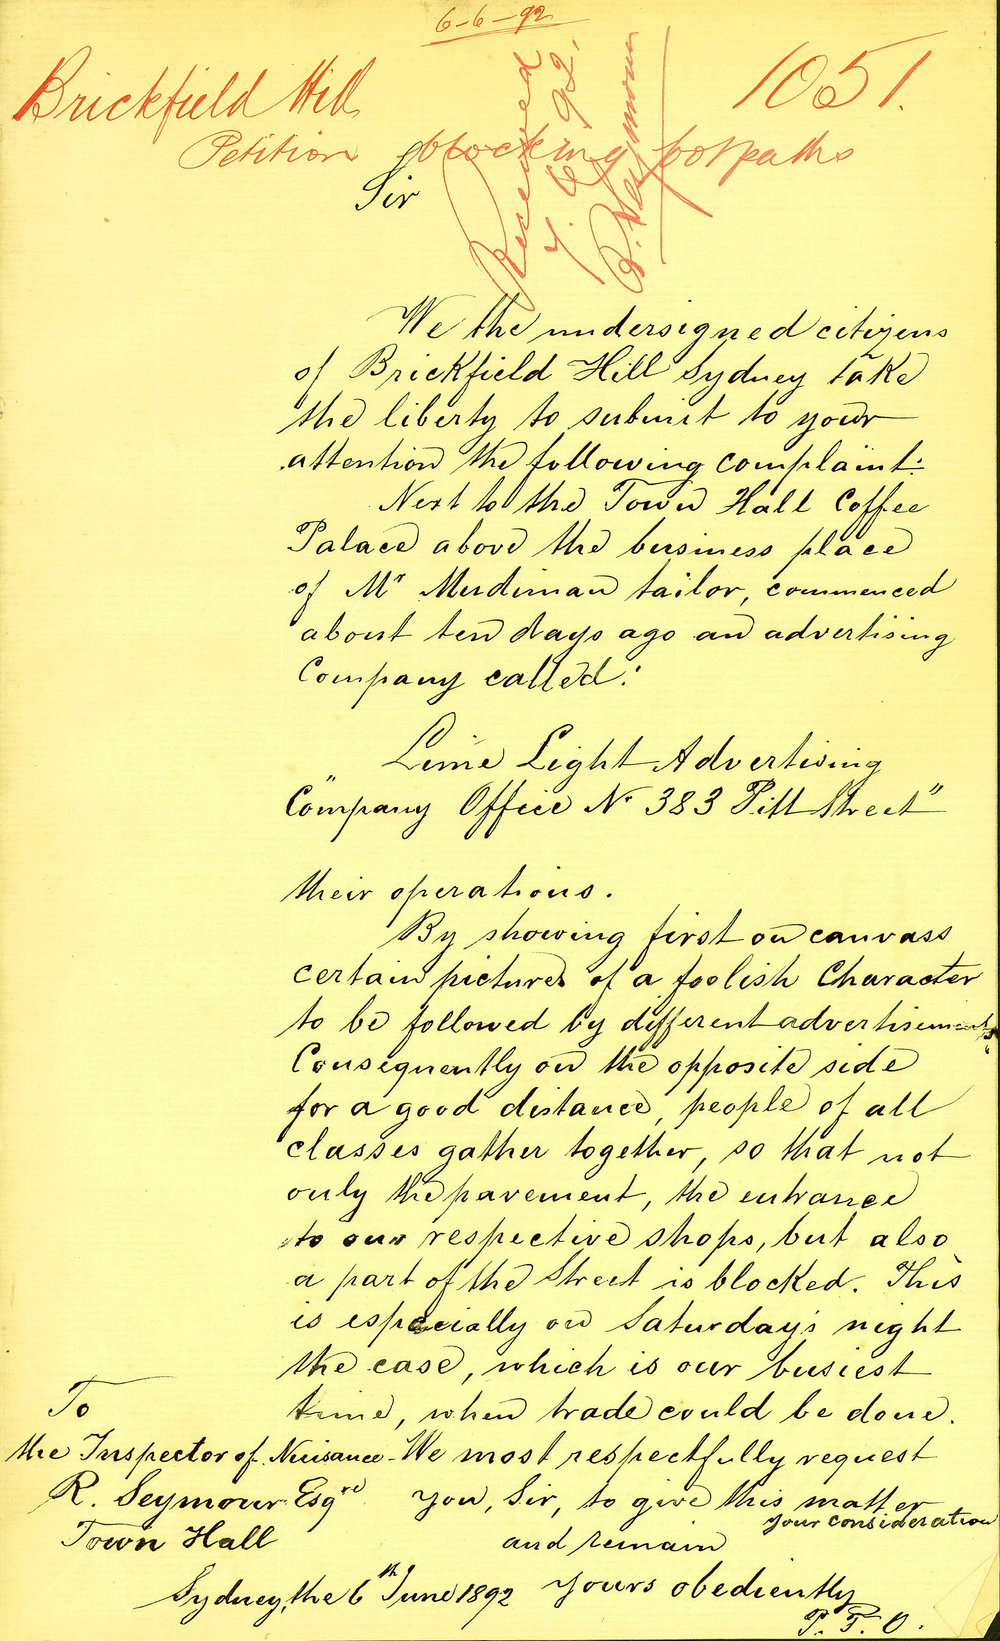 6-6-92
Brickfield Hill
1051.
Petition blocking footpaths
Received
7.6.92.
R. Seymour
Sir
We the undersigned citizens
of Brickfield Hill Sydney take
the liberty to submit to your
attention the following complaint:
Next to the Town Hall Coffee
Palace above the business place
of Mr Murdiman tailor, commenced
about ten days ago an advertising
Company called:
Lime Light Advertising
"Company Office No 383 Pitt Street"
their operations.
By showing first on canvass
certain pictures of a foolish Character
to be followed by different advertisements
Consequently on the opposite side
for a good distance, people of all
classes gather together, so that not
only the pavement, the entrance
to our respective shops, but also
a part of the Street is blocked. This
is especially on Saturday's night
the case, which is our busiest
time, when trade could be done.
We most respectfully request
you, Sir, to give this matter
your consideration
and remain
Yours obediently
P.T.O.
To
the Inspector of Nuisance
R. Seymour Esqre
Town Hall
Sydney, the 6th June 1892